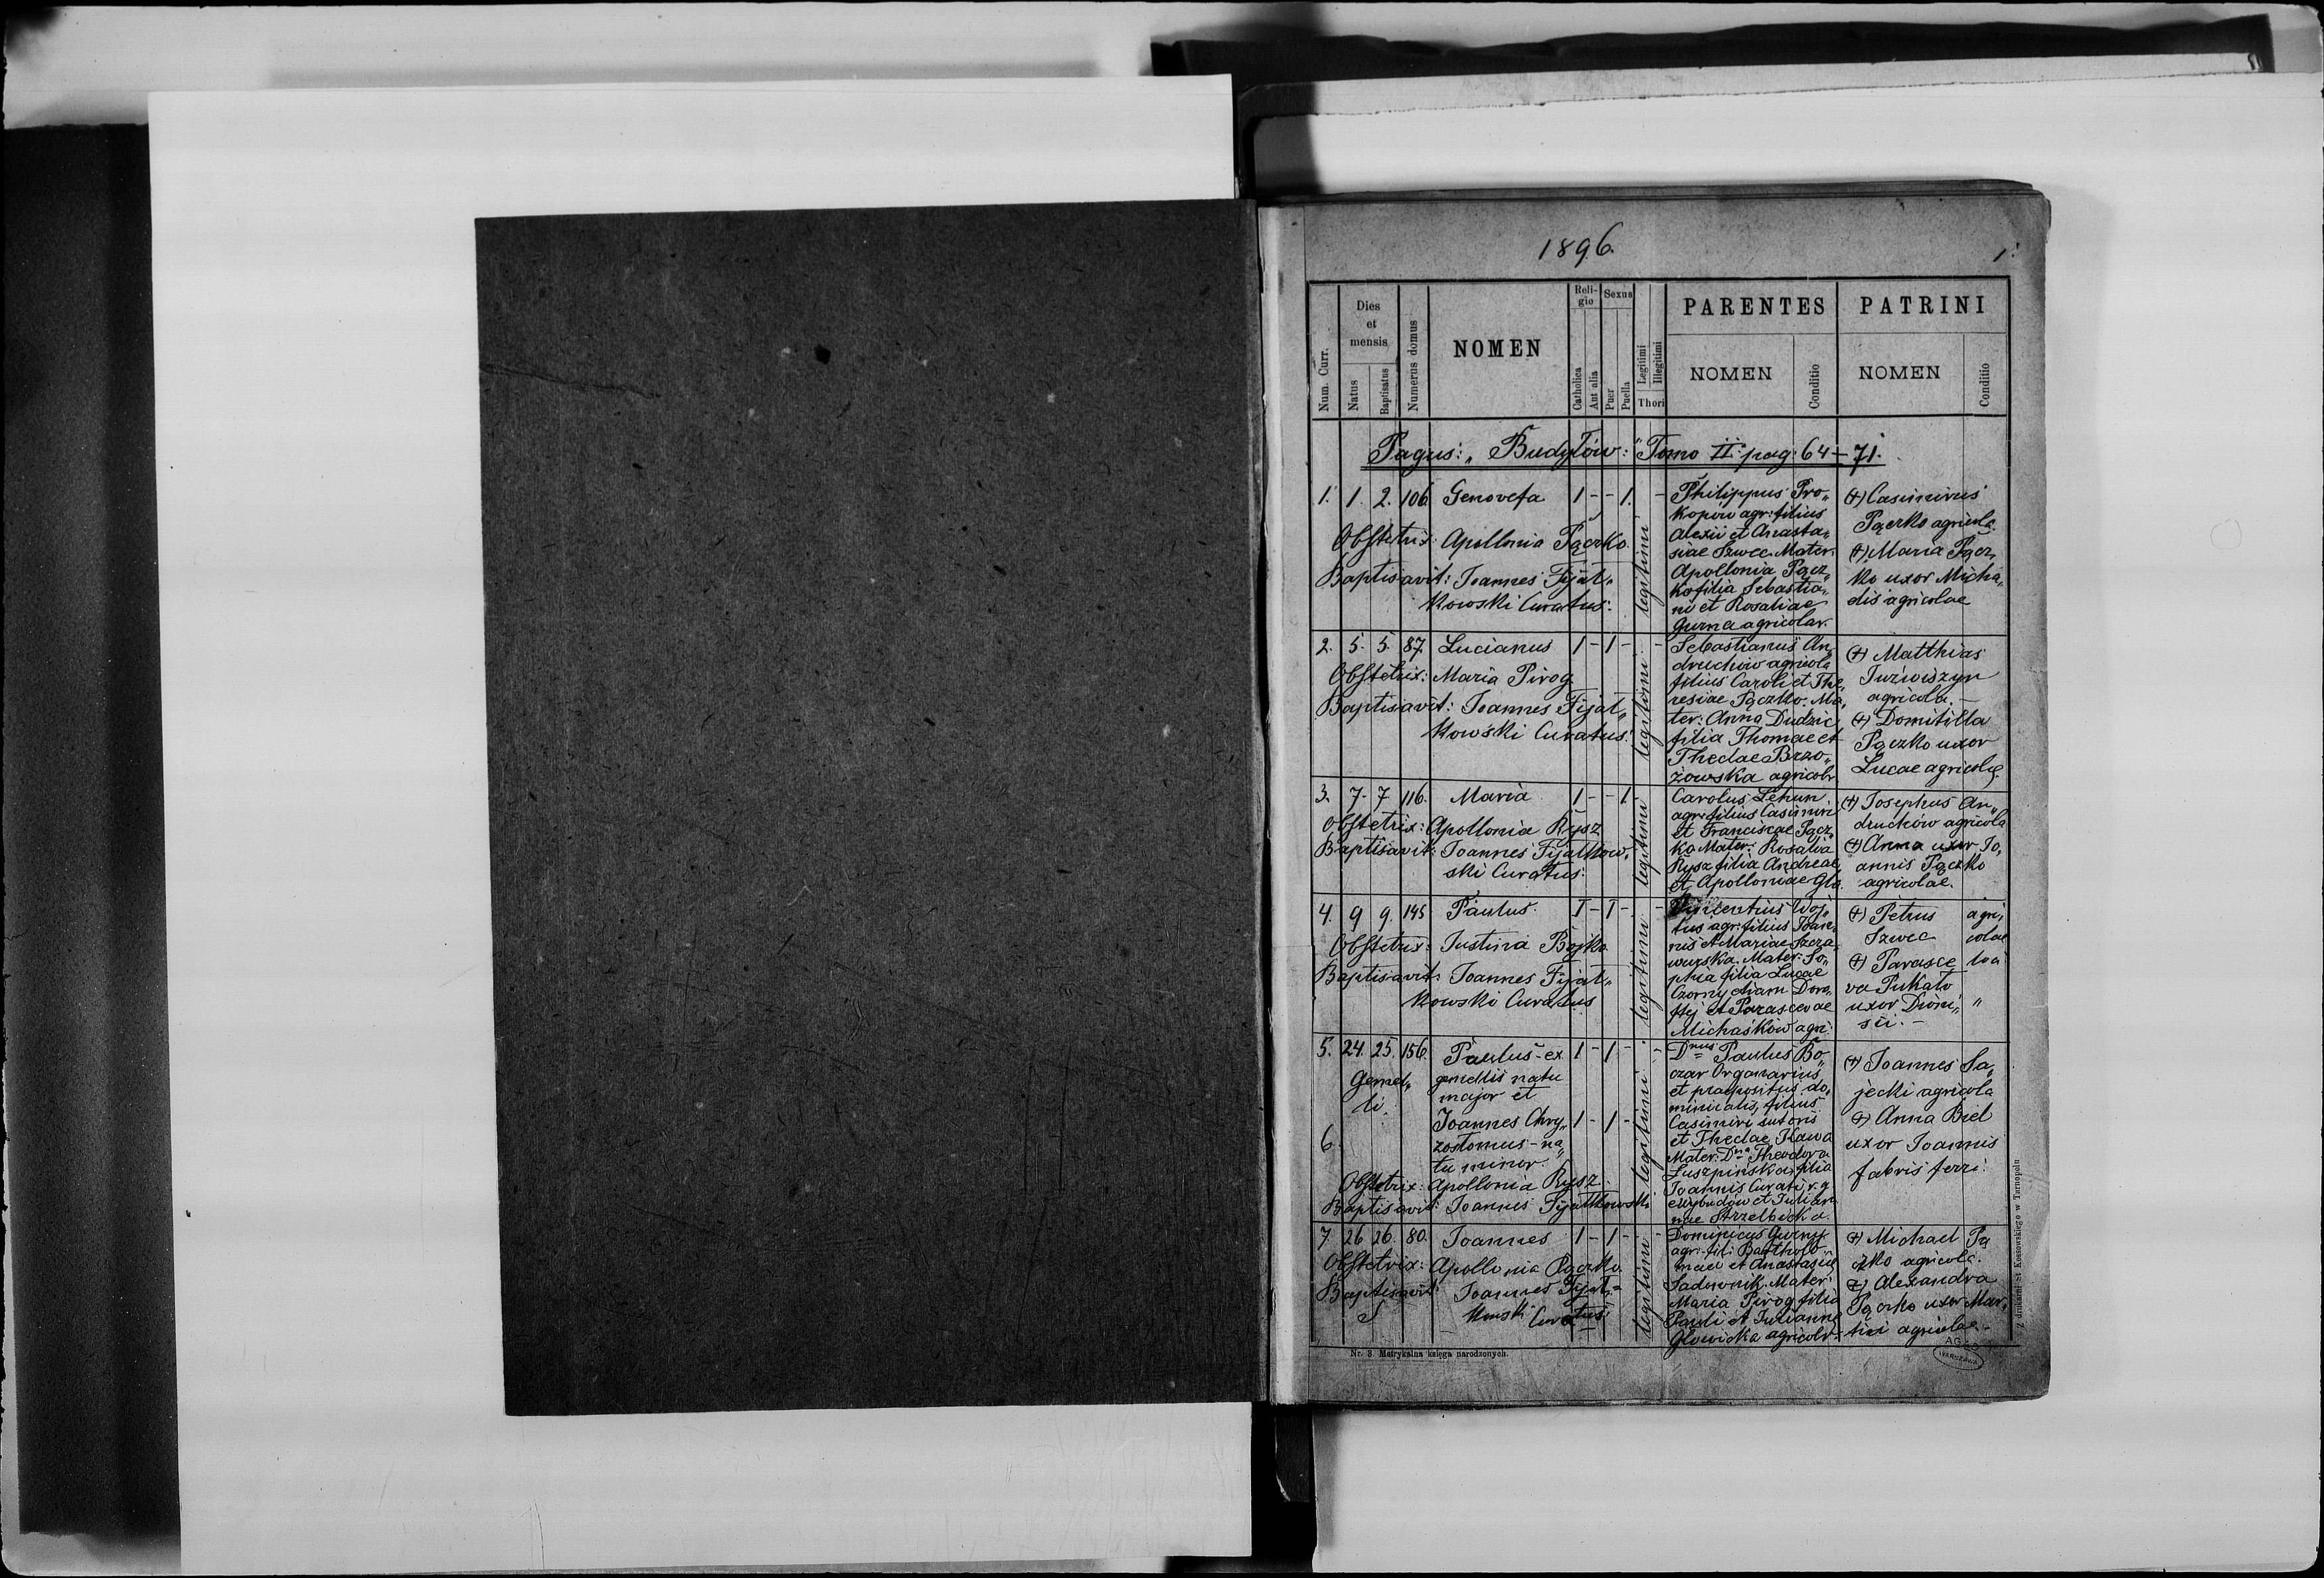 1896.
1.
Num. Curr.
Dies et mensis
Natus
Baptisatus
Numerus domus
NOMEN
Religio
Catholica
Aut alia
Sexus
Puer
Puella
Legitimi
Illegitimi
Thori
PARENTES
NOMEN
Conditio
PATRINI
NOMEN
Conditio
Pagus: „Budyłów:" Tomo II pag: 64–71.
1. 1. 2. 106. Genovefa 1 - - 1. -
Obstetrix: Apollonia Pączko.
Baptisavit: Joannes Fijał„
kowski Curatus.
legitimi
Philippus Pro„
kopów agr: filius
Alexii et Anasta„
siae Szwec. Mater:
Apollonia Pącz„
ko filia Sebastia„
ni et Rosaliae
Gurna agricolar.
(+) Casimirus
Pączko agricola.
(+) Maria Pącz„
ko uxor Micha„
elis agricolae
2. 5. 5. 87. Lucianus 1 - 1 - -
Obstetrix: Maria Pirog
Baptisavit: Joannes Fijał„
kowski Curatus.
legitimi
Sebastianus An„
druchów agricola
filius Caroli et The„
resiae Pączko. Ma„
ter: Anna Dudzic
filia Thomae et
Theclae Brzo„
zowska agricolr.
(+) Matthias
agricola. –
(+) Domitilla
Pączko uxor
Lucae agricolę
3. 7. 7. 116. Maria 1 - - 1 -
Obstetrix: Apollonia Rysz
Baptisavit: Joannes Fijałkow„
ski Curatus.
legitimi
Carolus Lehun
agr: filius Casimiri
et Franciscae Pącz„
ko Mater: Rosalia
Rysz filia Andreae
et Apolloniae
(+) Josephus An„
druchów agricola
(+) Anna uxor Jo„
annis Pączko
agricolae.
4. 9 9. 145 Paulus. 1 - 1 - -
Obstetrix: Justina Bojko
Baptisavit: Joannes Fijał„
kowski Curatus
legitimi
Vincentius Woj„
tus agr: filius Joan„
nis et Mariae
Mater: So„
phia filia Lucae
Czorny etiam
et Parascevae
Michaśków agr:
(+) Petrus agri„
Szwec colae
(+) Parasce
va Pukało
uxor Dioni„ "
sii. –
5. 24. 25. 156. Paulus - ex 1 - 1 - -
Gemel„ gemellis natu
li. major et
6. Joannes Chry„ 1 - 1 -
zostomus - na„
tu minor.
Obstetrix: Apollonia Rysz
Baptisavit: Joannes Fijałkowski
legitimi
Dnus Paulus Bo„
czar Organarius
et praepositus do„
minicalis, filius
Casimiri sutoris
et Theclae
Mater: Dna Theodora
filia
Joannis Curati r. g
et Julian„
nae Strzelbicka.
(+) Joannes Sa„
jecki agricola
(+) Anna Biel
uxor Joannis
fabris ferri.
7. 26. 26. 80. Joannes 1 - 1 - -
Obstetrix: Apollonia Pączko
Baptisavit: Joannes Fijał-
kowski Curatus.
legitimi
Dominicus Gurny
agr: fil: Bartholo„
maei et Anastasiae
Sadownik. Mater:
Maria Pirog filia
Pauli et Julianna
Głowicka agricolr.
(+) Michael Pą
czko agricola.
2) Alexandra
Pączko uxor Mar„
tini agricolae.
Nr. 3. Metrykalna księga narodzonych.
Z drukarni St Kossowskiego w Tarnopolu
AGAD
WARSZAWA